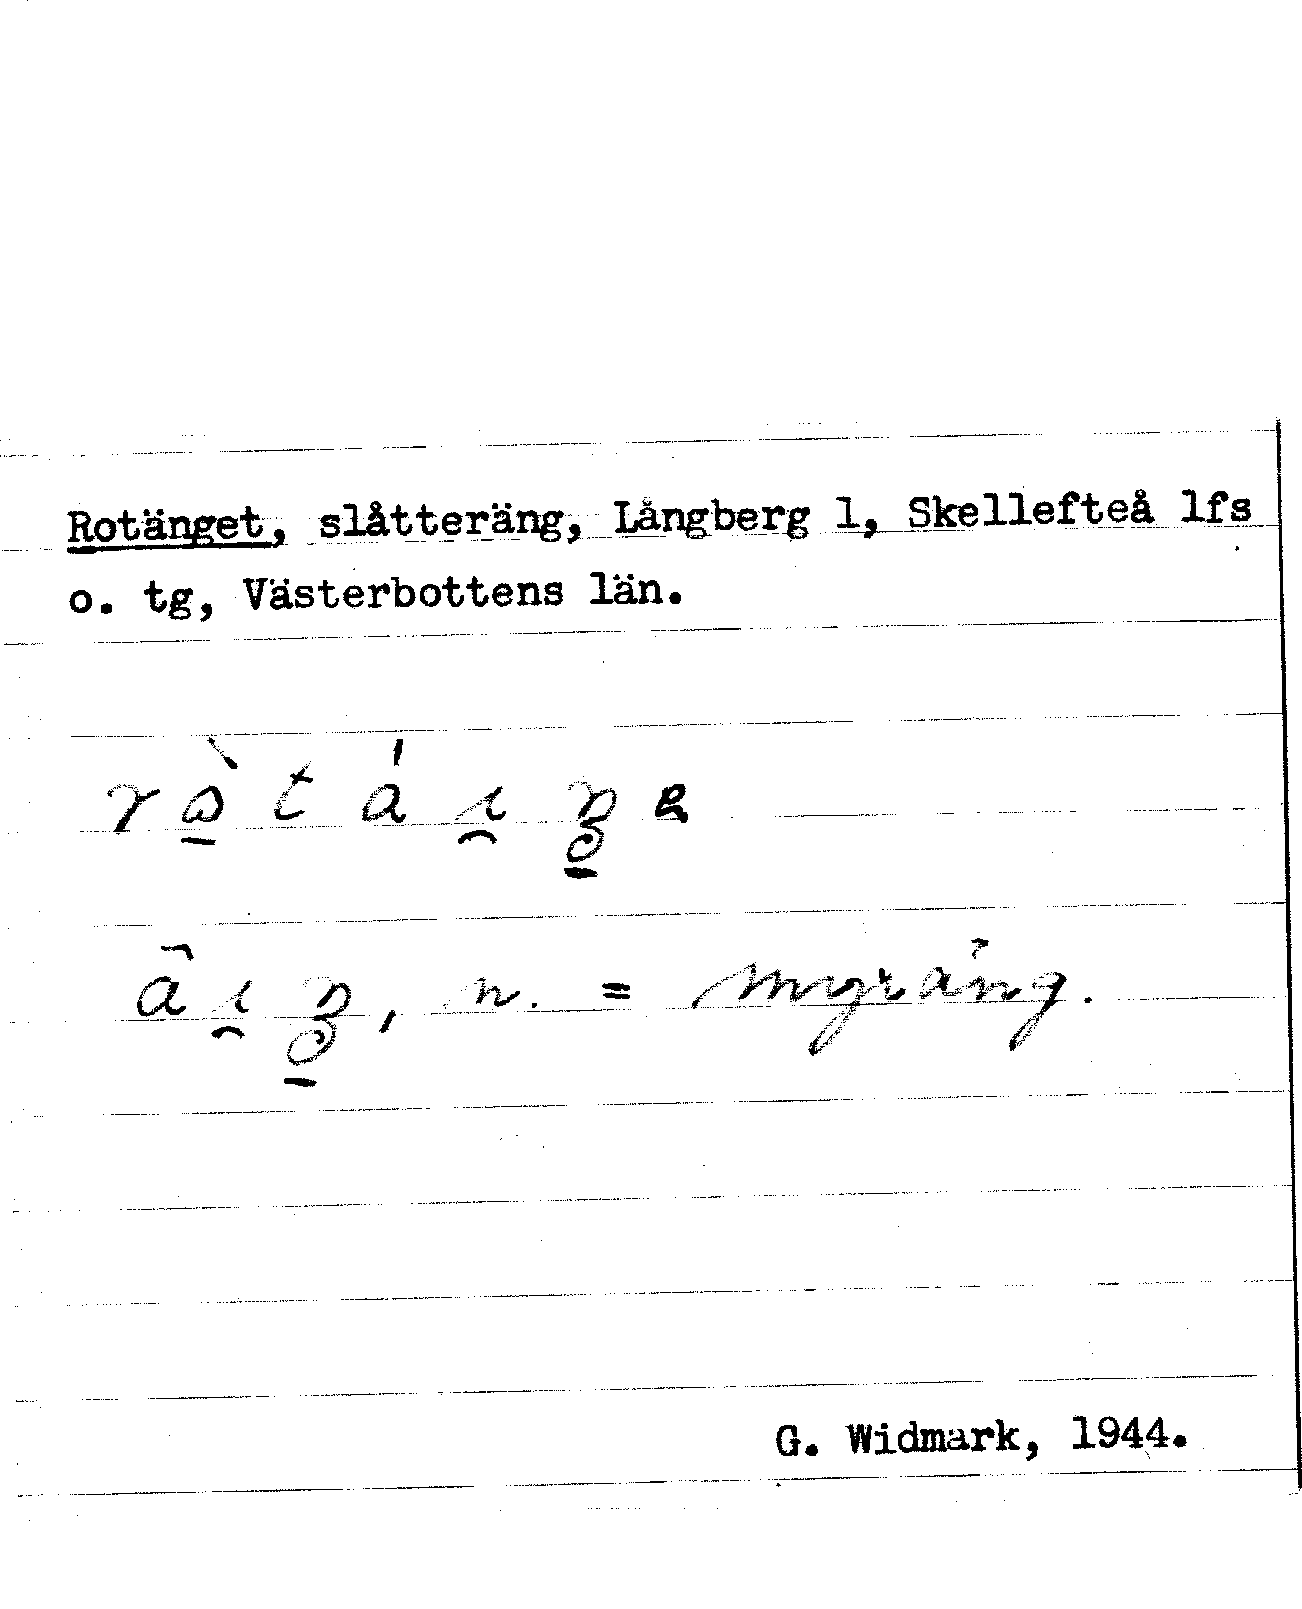 Rotänget, slåtteräng, Långberg 1, Skellefteå lfs
o. tg, Västerbottens län.
n. = myräng.
G. Widmark, 1944.